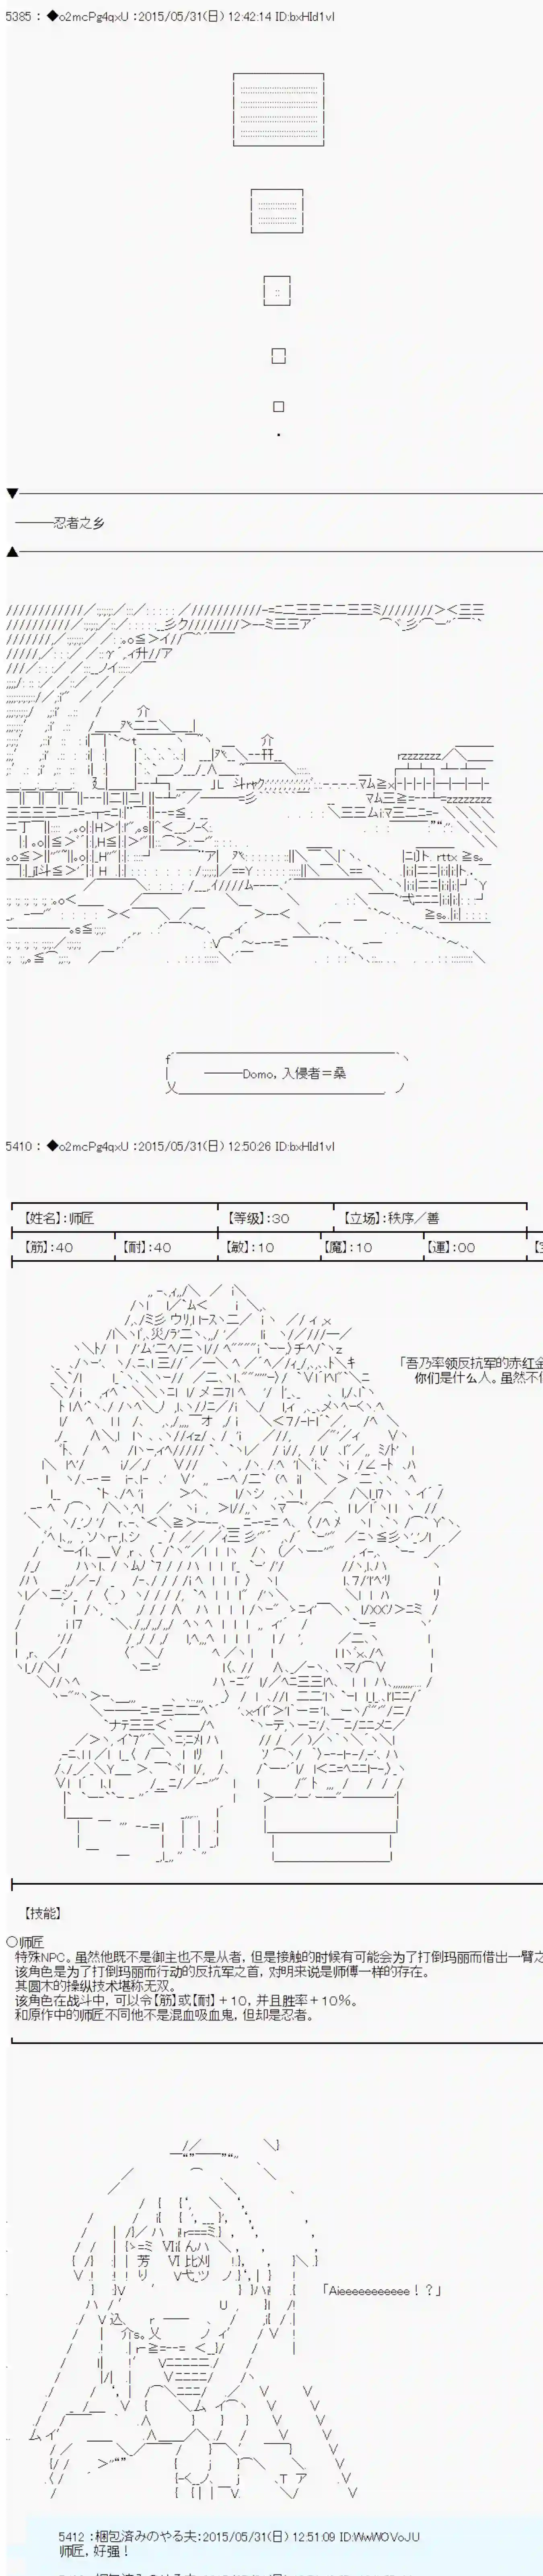 5385 : ◆o2mcPg4qxU : 2015/05/31(日) 12:42:14 ID:bxHId1vI
▼
―――忍者之乡
▲
―――Domo, 入侵者＝桑
5410 : ◆o2mcPg4qxU : 2015/05/31(日) 12:50:26 ID:bxHId1vI
【姓名】:师匠 【等级】:30 【立场】:秩序／善
【筋】:40 【耐】:40 【敏】:10 【魔】:10 【運】:00
「吾乃率领反抗军的赤红
你们是什么人。虽然不
【技能】
○师匠
特殊NPC。虽然他既不是御主也不是从者，但是接触的时候有可能会为了打倒玛丽而借出一臂之
该角色是为了打倒玛丽而行动的反抗军之首，对明来说是师傅一样的存在。
其圆木的操纵技术堪称无双。
该角色在战斗中，可以令【筋】或【耐】＋10，并且胜率＋10%。
和原作中的师匠不同他不是混血吸血鬼，但却是忍者。
「Aieeeeeeeeeee！？」
5412 : 梱包済みのやる夫 : 2015/05/31(日) 12:51:09 ID:WwWOVoJU
师匠，好强！